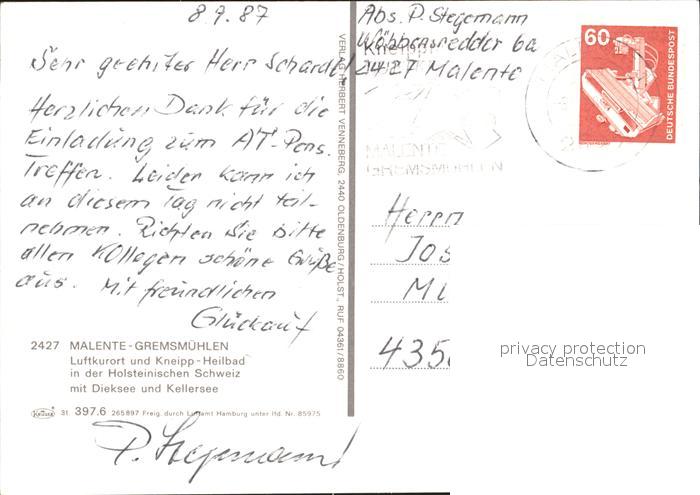 8.9.87
Sehr geehrter Herr Schardt!
Herzlichen Dank für die
Einladung zum AT-Pens.
Treffen. Leider kann ich
an diesem Tag nicht teil-
nehmen. Richten Sie bitte
allen Kollegen schöne Grüße
aus. Mit freundlichen
Glückauf
P. Stegemann
2427 MALENTE-GREMSMÜHLEN
Luftkurort und Kneipp-Heilbad
in der Holsteinischen Schweiz
mit Dieksee und Kellersee
Krüger 31. 397.6 265897 Freig. durch Luftamt Hamburg unter lfd. Nr. 85975
VERLAG HERBERT VENNEBERG, 2440 OLDENBURG/HOLST., RUF 04361/8860
Abs. P. Stegemann
Wöbbensredder 6a
2427 Malente
Kneipp
MALENTE
GREMSMÜHLEN
60
DEUTSCHE BUNDESPOST
Herrn
Jos
Mi
435
privacy protection
Datenschutz